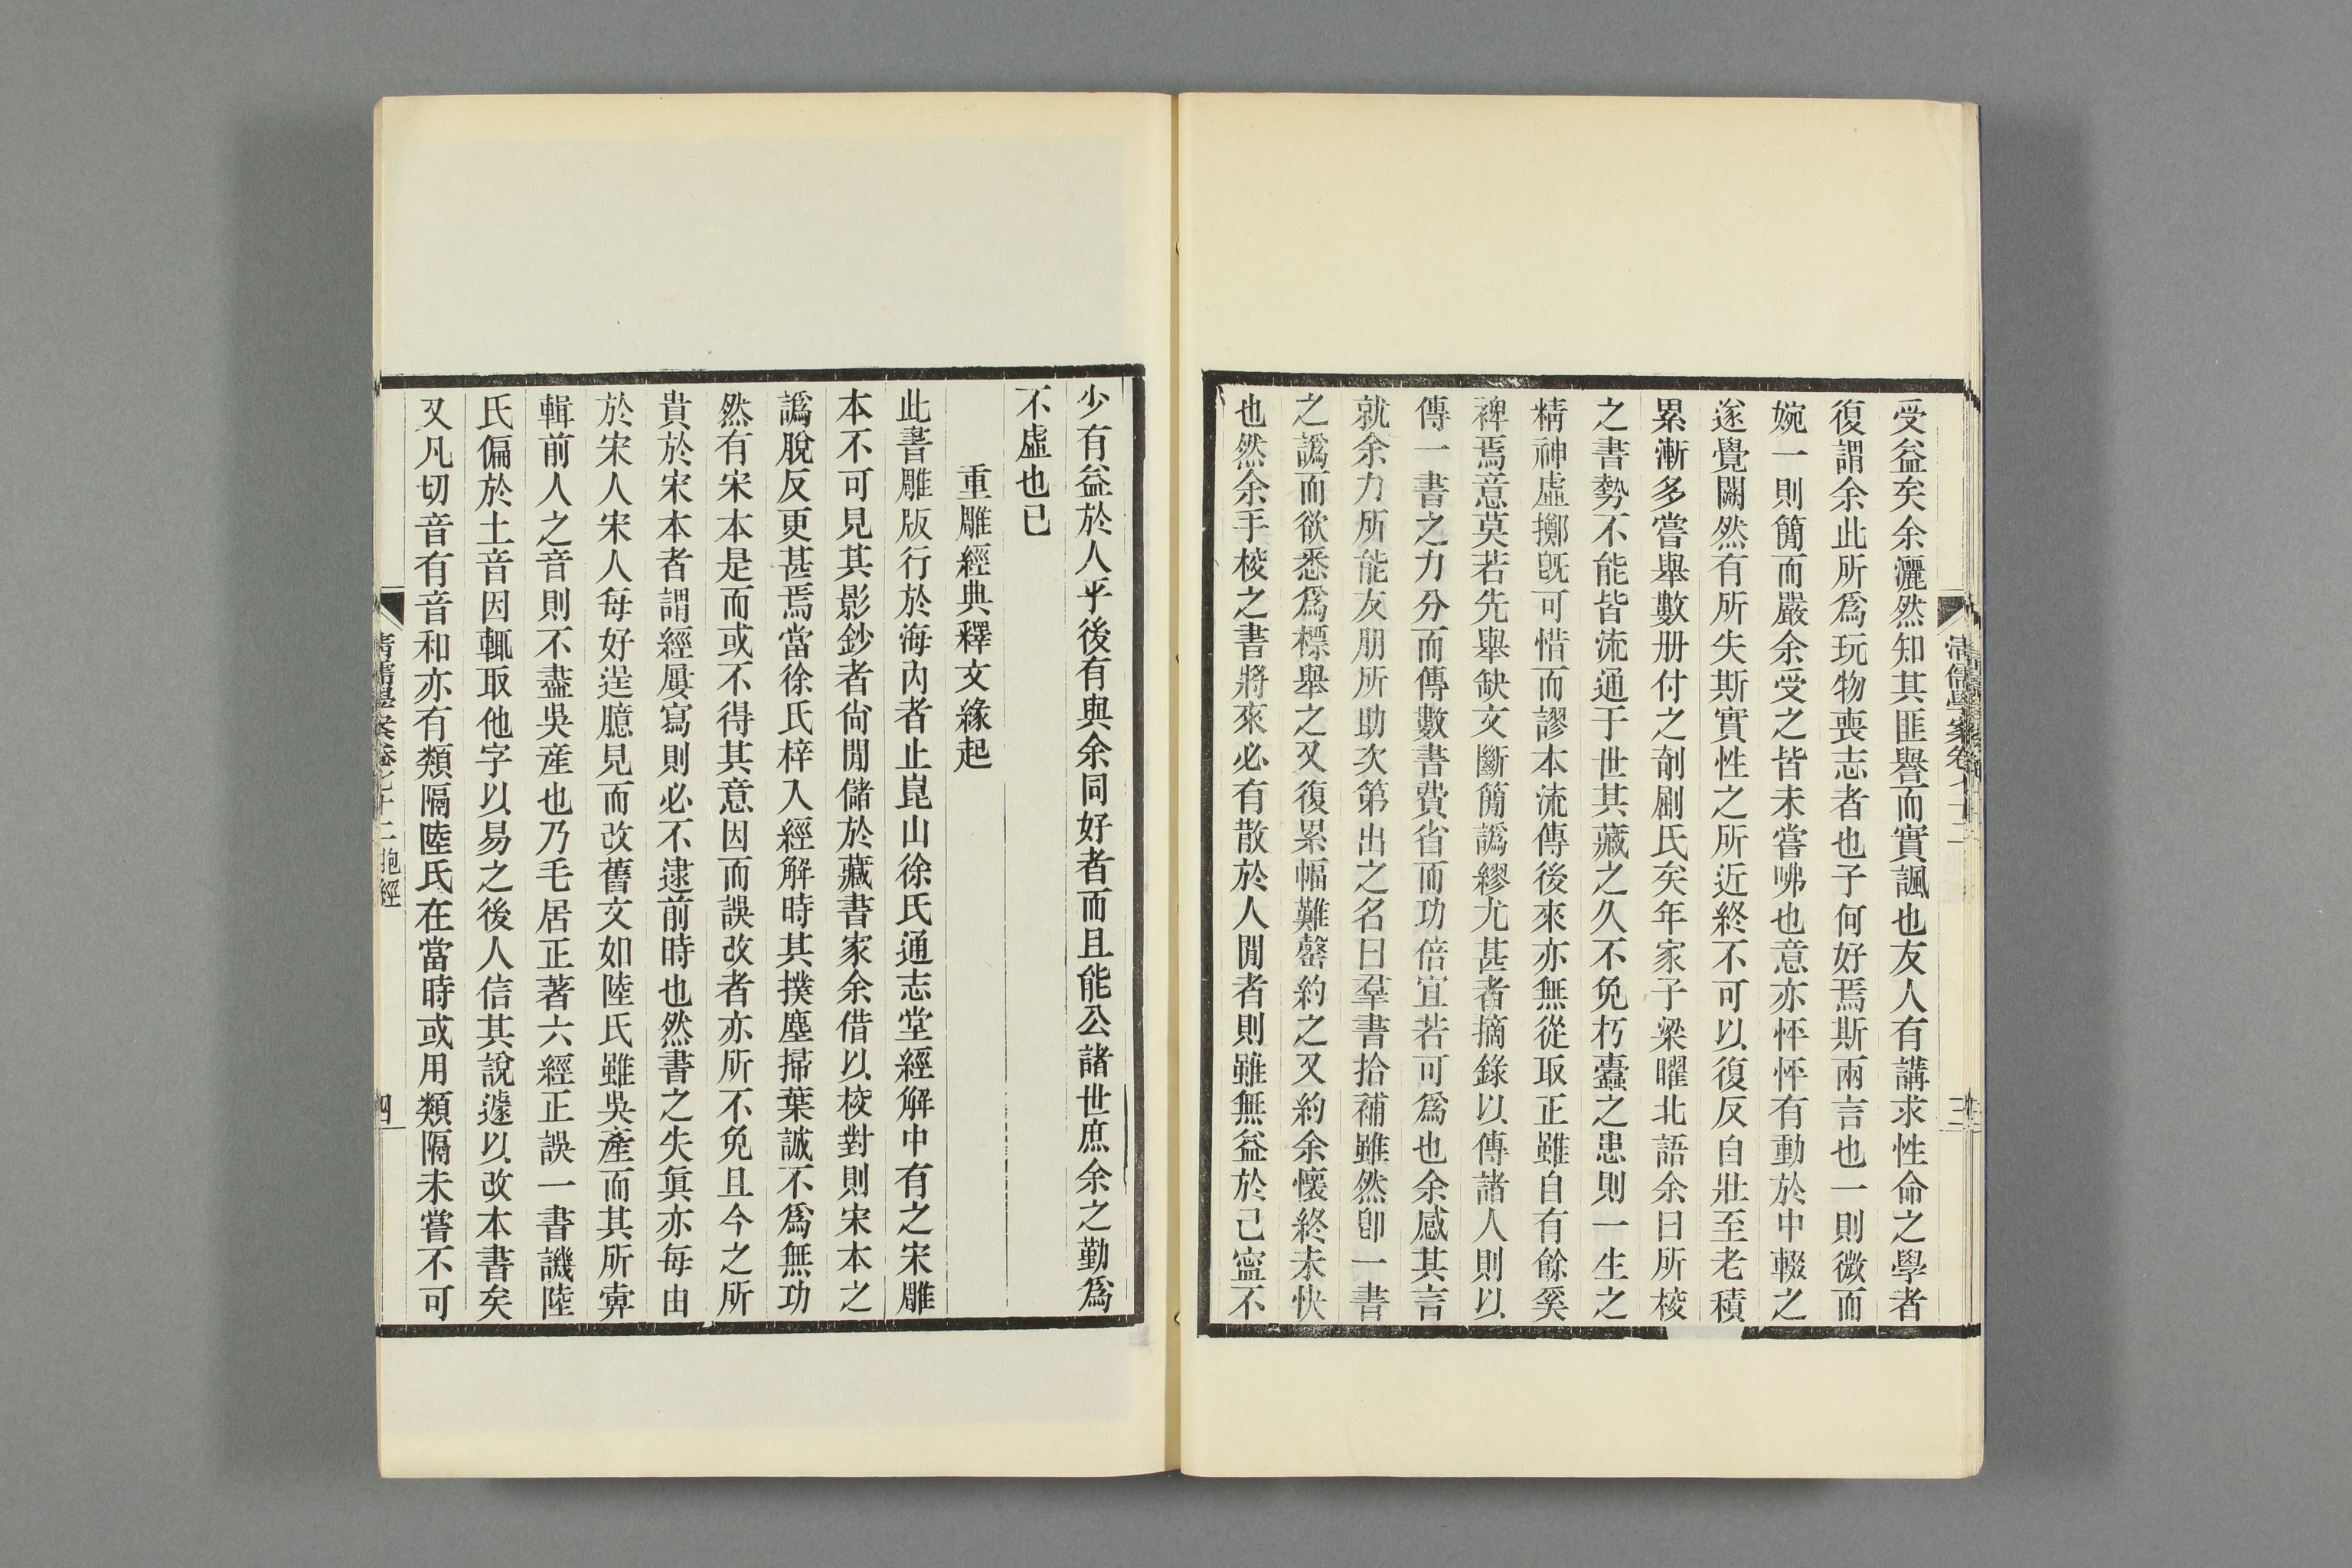 受益矣余灑然知其匪譽而實諷也友人有講求性命之學者
復謂余此所爲玩物喪志者也子何好焉斯兩言也一則微而
婉一則簡而嚴余受之皆未嘗咈也意亦怦怦有動於中輟之
遂覺闕然有所失斯實性之所近終不可以復反自壯至老積
累漸多嘗舉數册付之剞劂氏矣年家子梁曜北語余曰所校
之書勢不能皆流通于世其藏之久不免朽蠹之患則一生之
精神虛擲旣可惜而謬本流傳後來亦無從取正雖自有餘奚
裨焉意莫若先舉缺文斷簡譌繆尤甚者摘錄以傳諸人則以
傳一書之力分而傳數書費省而功倍宜若可爲也余感其言
就余力所能友朋所助次第出之名曰羣書拾補雖然卽一書
之譌而欲悉爲標舉之又復累幅難罄約之又約余懷終未快
也然余手校之書將來必有散於人閒者則雖無益於己寍不
清儒學案卷七十二
三
少有益於人乎後有與余同好者而且能公諸世庶余之勤爲
不虛也已
重雕經典釋文緣起
此書雕版行於海內者止崑山徐氏通志堂經解中有之宋雕
本不可見其影鈔者尙閒儲於藏書家余借以校對則宋本之
譌脫反更甚焉當徐氏梓入經解時其撲塵掃葉誠不爲無功
然有宋本是而或不得其意因而誤改者亦所不免且今之所
貴於宋本者謂經屢寫則必不逮前時也然書之失眞亦每由
於宋人宋人每好逞臆見而改舊文如陸氏雖吳產而其所弆
輯前人之音則不盡吳產也乃毛居正著六經正誤一書譏陸
氏偏於土音因輒取他字以易之後人信其說遽以改本書矣
又凡切音有音和亦有類隔陸氏在當時或用類隔未嘗不可
清儒學案卷七十二 抱經
四